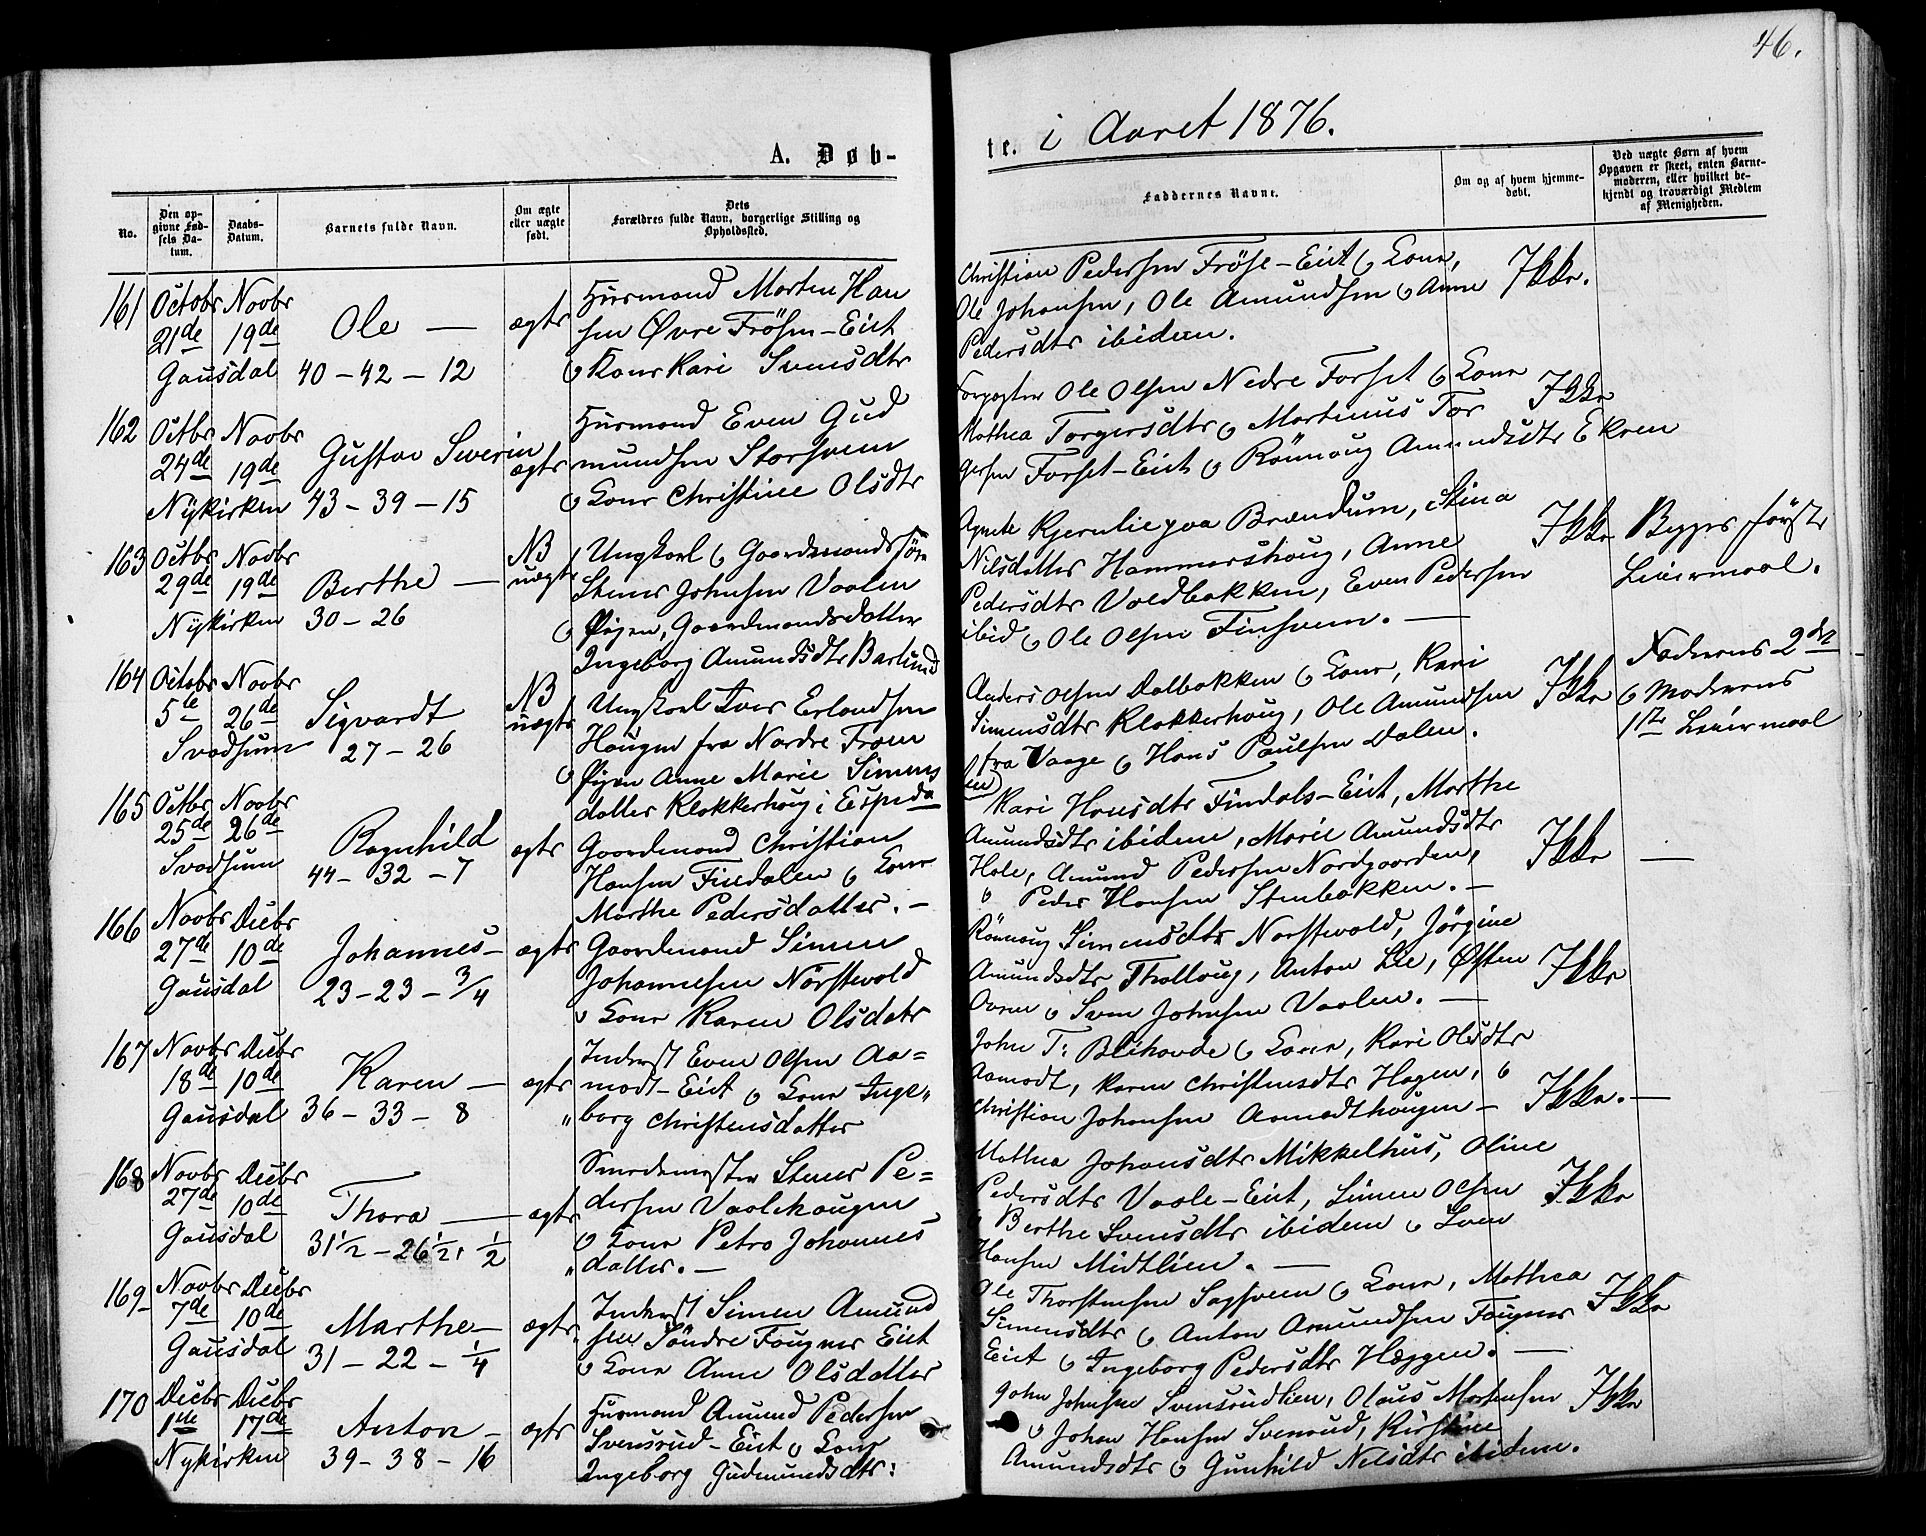 46.
A. Døb-
te. i Aaret 1876.
No.
Den op-
givne Fød-
sels Da-
tum.
Daabs-
Datum.
Barnets fulde Navn.
Om ægte
eller uægte
født.
Dets
Forældres fulde Navn, borgerlige Stilling og
Opholdssted.
Faddernes Navne.
Om og af hvem hjemme-
døbt.
Ved uægte Børn af hvem
Opgaven er skeet, enten Barne-
moderen, eller hvilket be-
kjendt og troværdigt Medlem
af Menigheden.
161
Octobr
21de
Novbr
19de
Gausdal
Ole —
40 - 42 - 12
ægte
Husmand Morten Han
sen Øvre Frösen - Eiet
o Kone Kari Svensdtr
Christian Pedersen Fröse - Eiet o Kone,
Ole Johansen, Ole Amundsen o Anne
Pedersdtr ibidem.
Ikke.
162
Octbr
24de
Novbr
19de
Nykirken
Gustav Severin
43 - 39 - 15
ægte
Husmand Even Gud
mundsen Storsveen
o Kone Christine Olsdtr
Forpagter Ole Olsen Nedre Forset o Kone
Mathea Torgersdtr o Martinus Tor
gersen Forset - Eiet o Rönnaug Amundsdtr Ekren
Ikke
163
Octbr
29de
Novbr
19de
Nykirken
Berthe —
30 - 26
NB
uægte
Ungkarl o Gaardmandssön
Stener Johnsen Vaalen
o Pigen, Gaardmandsdatter
Ingeborg Amundsdtr Barlund
Agnete Kjernlie paa Brændum, Stina
Nilsdatter Hammershaug, Anne
Pedersdtr Voldbakken, Even Pedersen
ibid o Ole Olsen Finsveen. —
Ikke
Begges förste
Leiermaal.
164
Octobr
5te
Novbr
26de
Svadsum
Sigvardt
27 - 26
NB
uægte
Ungkarl Iver Erlandsen
Haugen fra Nordre Fron
o Pigen Anne Marie Simens
datter Klokkerhaug i Espeda
len
Anders Olsen Dalbakken o Kone, Kari
Simensdtr Klokkerhaug, Ole Amundsen
fra Vaage o Hans Paulsen Dalen.
Ikke
Faderens 2det
o Moderens
1ste Leiermaal
165
Octbr
25de
Novbr
26de
Svadsum
Ragnhild
44 - 32 - 7
ægte
Gaardmand Christian
Hansen Findalen o Kone
Marthe Pedersdatter. —
Kari Hansdtr Findals - Eiet, Marthe
Amundsdtr ibidem, Marie Amundsdtr
Hole, Amund Pedersen Nordgaarden,
o Peder Hansen Stenbakken. —
Ikke
—
166
Novbr
27de
Decbr
10de
Gausdal
Johannes —
23 - 23 - 3/4
ægte
Gaardmand Simen
Johannesen Nörstevold
o Kone Karen Olsdatr
Rönnaug Simensdtr Norstevold, Jörgine
Amundsdtr Thallaug, Anton Lie, Østen
Ovren o Sven Johnsen Vaalen. —
Ikke
167
Novbr
18de
Decbr
10de
Gausdal
Karen —
36 - 33 - 8
ægte
Inderst Even Olsen Aa=
modt - Eiet o Kone Inge"
"borg Christensdatter
John T: Blihovde o Kone, Kari Olsdtr
Aamodt, Karen Christensdtr Hagen, o
Christian Johansen Aamodthaugen —
Ikke. —
168
Novbr
27de
Decbr
10de
Gausdal
Thora —
31 1/2 - 26 1/2, 1/2
ægte
Smedemester Stener Pe=
dersen Vaalehaugen
o Kone Petra Johannes
" datter. —
Mathea Johansdtr Mikkelhus, Oline
Pedersdtr Vaale - Eiet, Simen Olsen
o Berthe Svensdtr ibidem o Sven
Hansen Midtlien. —
Ikke
169
Novbr
7de
Decbr
10de
Gausdal
Marthe —
31 - 22 - 1/4
ægte
Inderst Simen Amund
sen Söndre Fougner Eiet
o Kone Anne Olsdatter
Ole Thorstensen Sagsveen o Kone, Mathea
Simensdtr o Anton Amundsen Fougner
Eiet o Ingeborg Pedersdtr Hæggen. —
Ikke
170
Decbr
1ste
Decbr
17de
Nykirken
Anton —
39 - 38 - 16
ægte
Husmand Amund Pedersen
Svensrud - Eiet o Kone
Ingeborg Gudmundsdtr:
John Johnsen Svensrudlien, Olaus Mortensen
o Johan Hansen Svensrud, Kirstine
Amundsdtr o Gunhild Nilsdtr ibidem.
Ikke